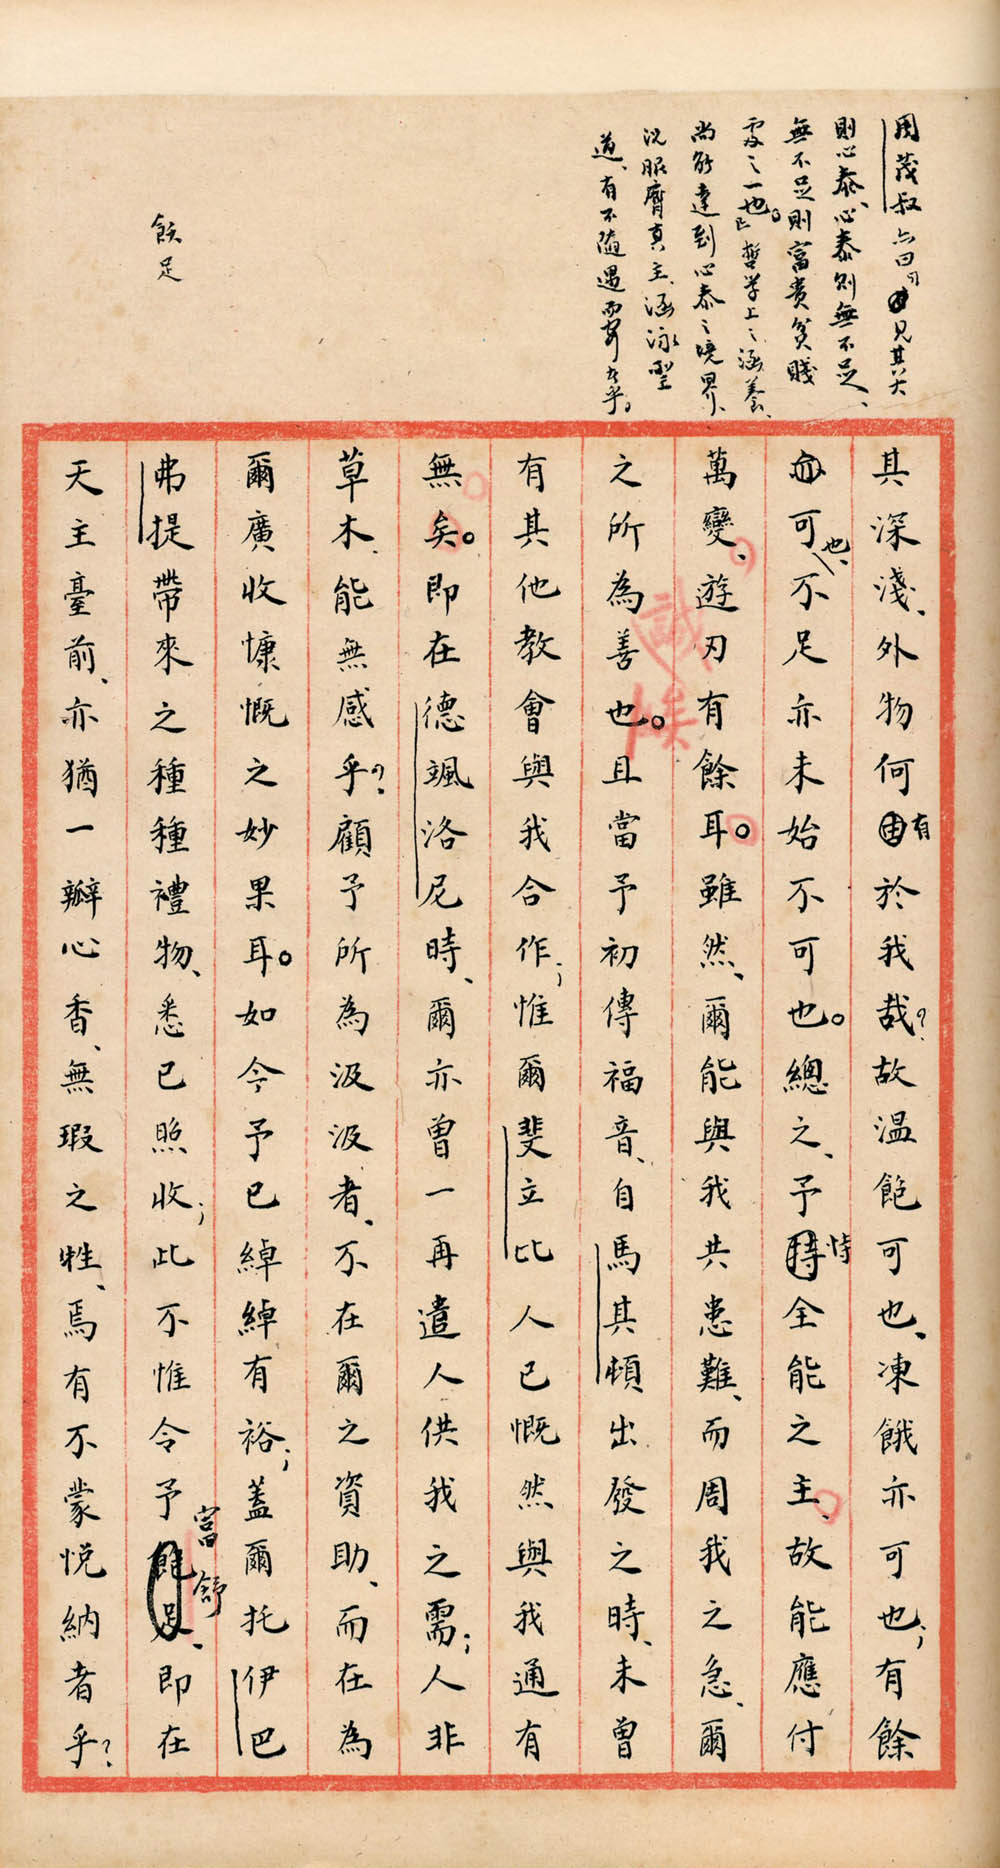 周茂叔亦曰見其大
則心泰、心泰則無不足、
無不足則富貴貧賤
處之一也。哲學上之涵養、
尚能達到心泰之境界、
況服膺真主、涵泳聖
道、有不隨遇而安者乎。
飫足
其深淺、外物何有於我哉?故温飽可也、凍餓亦可也;有餘
可也、不足亦未始不可也。總之、予恃全能之主、故能應付
萬變、遊刃有餘耳。雖然、爾能與我共患難、而周我之急、爾
之所為善也。且當予初傳福音、自馬其頓出發之時、未曾
有其他教會與我合作;惟爾斐立比人已慨然與我通有
無矣。即在德颯洛尼時、爾亦曾一再遣人供我之需;人非
草木、能無感乎?顧予所為汲汲者、不在爾之資助、而在為
爾廣收慷慨之妙果耳。如今予已綽綽有裕;蓋爾托伊巴
弗提帶來之種種禮物、悉已照收;此不惟令予富舒、即在
天主臺前、亦猶一瓣心香、無瑕之牲、焉有不蒙悅納者乎?